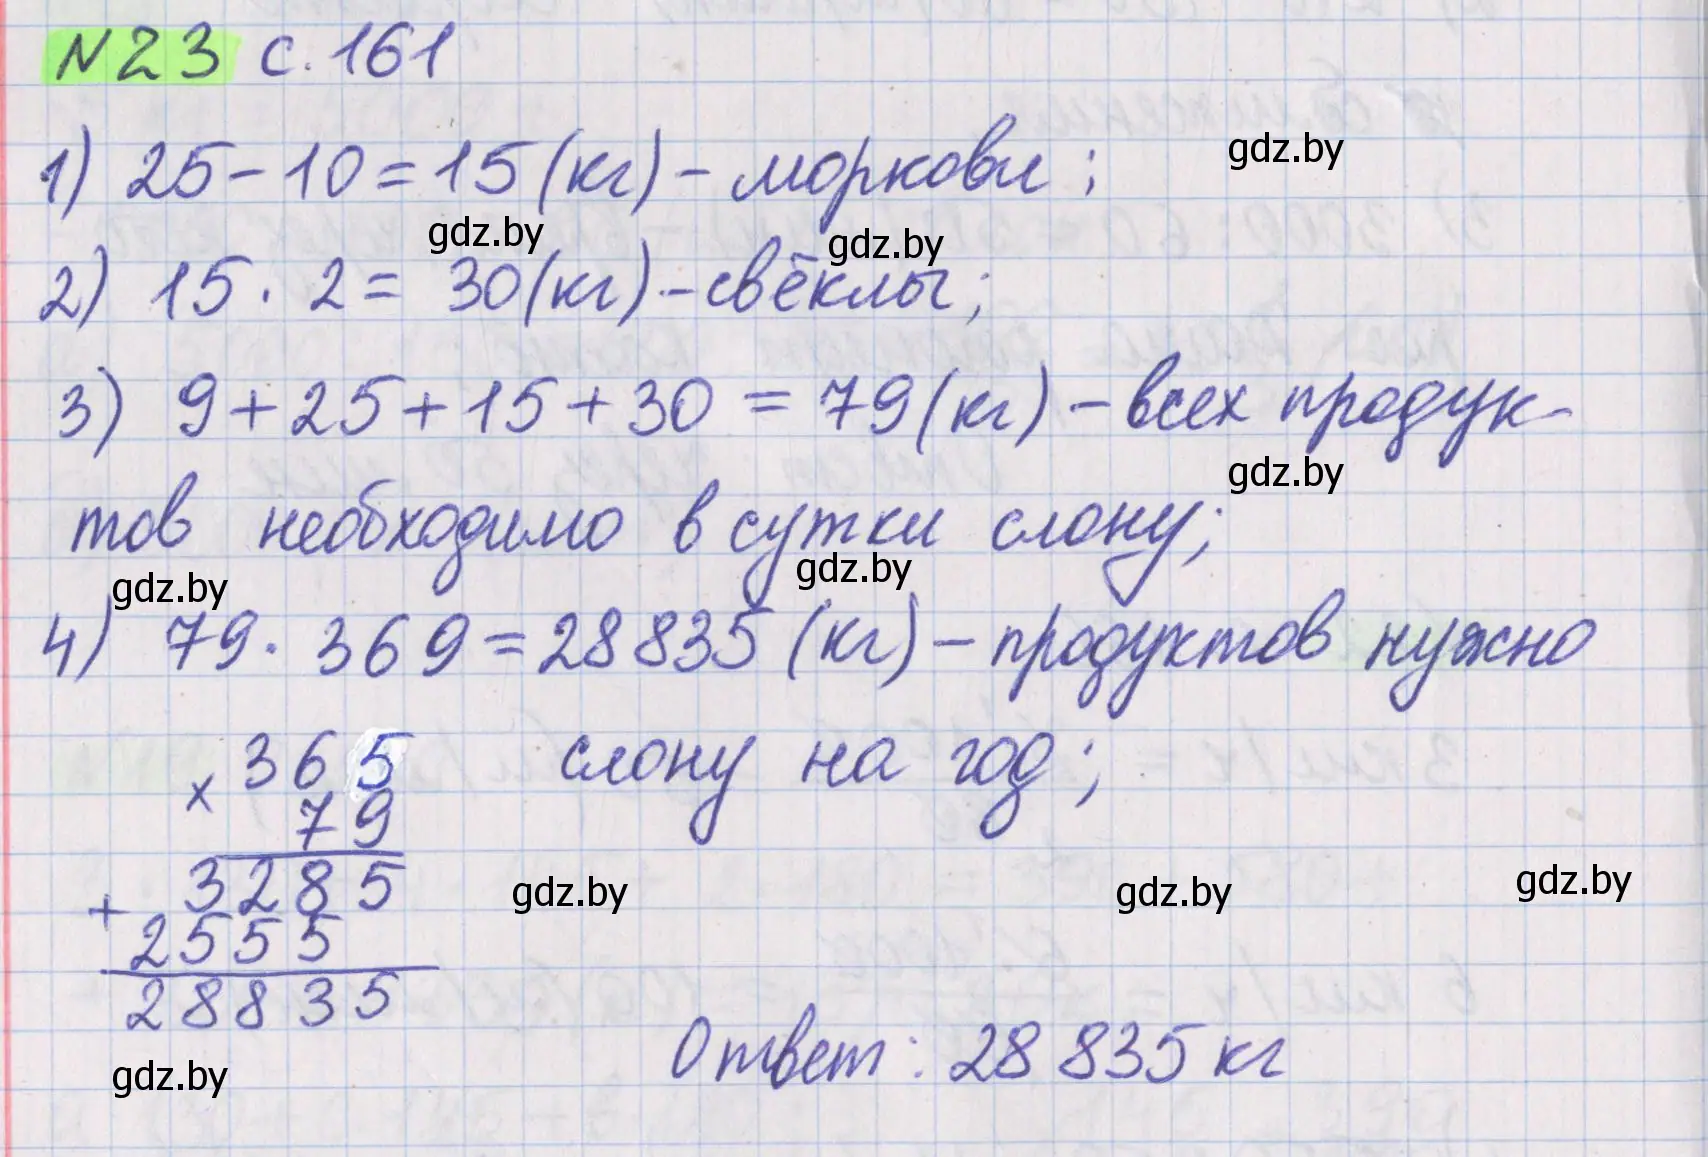 N23 с. 161
1) 25 - 10 = 15 (кг) - моркови ;
gdz.by
gdz.by gdz.by
2) 15 · 2 = 30 (кг) - свёклы ;
3) 9 + 25 + 15 + 30 = 79 (кг) - всех продук-
gdz.by
тов необходимо в сутки слону ;
gdz.by gdz.by
4) 79 · 369 = 28 835 (кг) - продуктов нужно
слону на год ;
× 365
79
+ 3285
2555
28835
gdz.by gdz.by gdz.by
Ответ : 28 835 кг
gdz.by